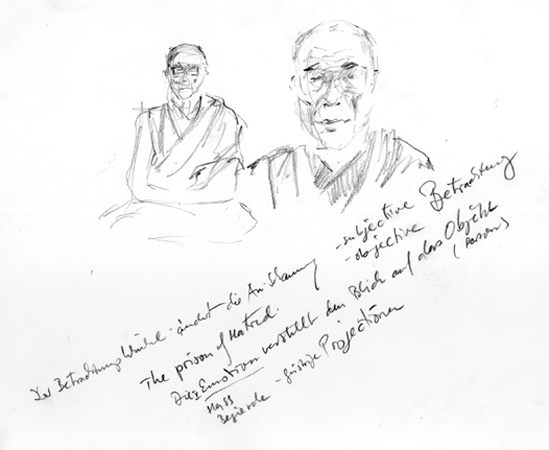 Der Betrachtungswinkel ändert die Anschauung
- subjective Betrachtung
- objective
The prison of Hatred.
Die Emotion verstellt den Blick auf das Objekt
(Person)
Hass
Begierde - geistige Projectionen